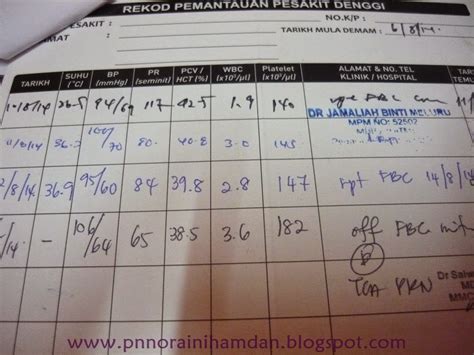 REKOD PEMANTAUAN PESAKIT DENGGI
PESAKIT :
NO.K/P :
TARIKH MULA DEMAM : 6/8/14.
TARIKH SUHU (°C) BP (mmHg) PR (seminit) PCV / HCT (%) WBC (x10³/µl) Platelet (x10³/µl) ALAMAT & NO. TEL KLINIK / HOSPITAL
10/8/14 36.5 94/69 117 42.5 1.9 140 rpt FBC
DR JAMALIAH BINTI
MPM NO: 52502
/8/14 36.2 100/70 80 40.8 3.0 145
2/8/14 36.9 95/60 84 39.8 2.8 147 rpt FBC 14/8/14
/14 - 106/64 65 38.5 3.6 182 off FBC
TCA PRN
www.pnnorainihamdan.blogspot.com